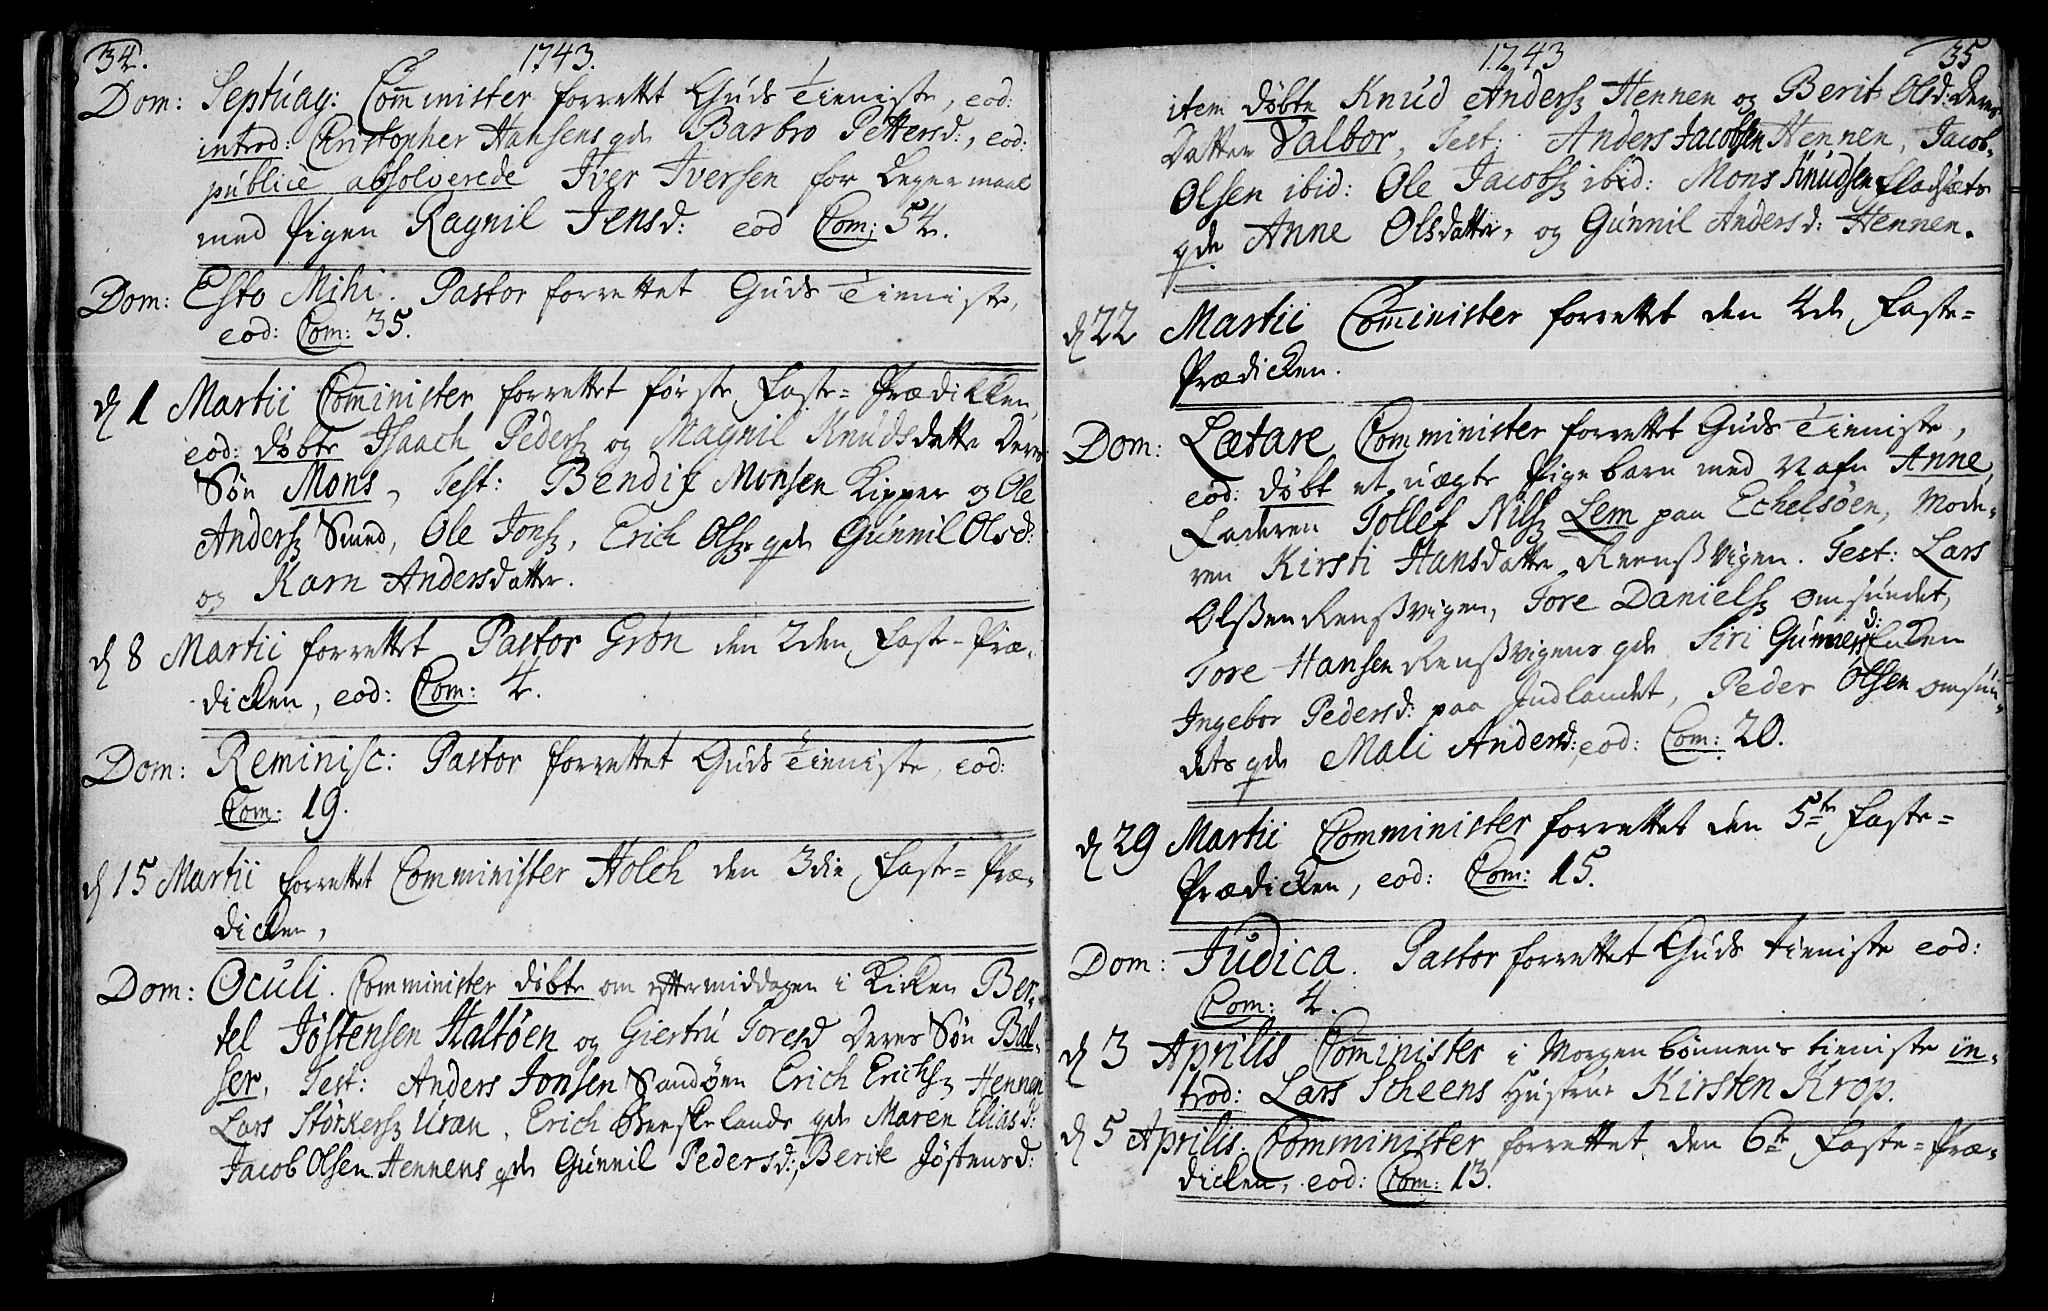 34. 1743.
Dom: Septuag: Comminister forrettet Guds Tieniste, eod:
introd: Christopher Hansens qde Barbro Pettersd:, eod:
publice absolverede Iver Iversen for Legermaal
med Pigen Ragnil Jensd: eod Com: 54.
Dom: Esto Mihi. Pastor forrettet Guds Tieniste,
eod: Com: 35.
d 1 Martii Comminister forrettet første Faste= Prædikken,
eod: døbte Isaach Peders og Magnil Knudsdatter Deres
Søn Mons, Test: Bendix Monsen Kipper og Ole
Anders Smed, Ole Jons, Erich Ols qde Gunnil Olsd:
og Karn Andersdatter.
d 8 Martii forrettet Pastor Grøn den 2den Faste-Præ-
dicken, eod: Com: 4.
Dom: Reminisc: Pastor forrettet Guds Tieniste, eod:
Com: 19.
d 15 Martii forrettet Comminister Holch den 3die Faste= Præ-
dicken,
Dom: Oculi. Comminister døbte om eftermiddagen i Kirken Ber-
tel Jøstensen Haltøen og Giertru Toresd Deres Søn Bal-
ser, Test: Anders Jonsen Sandøen Erich Erichs Hennen
Lars Størkers Uran, Erich Beskelands qde Maren Eliasd:
Jacob Olsen Hennens qde Gunnil Pedersd:, Berite Jøstensd:
1743 35
item døbte Knud Anders Hennen og Berit Olsd: Deres
Datter Valbor, Test: Anders Jacobsen Hennen, Jacob
Olsen ibid: Ole Jacobs ibid: Mons Knudsen Fladsæts
qde Anne Olsdatter, og Gunnil Andersd: Hennen.
d 22 Martii Comminister forrettet den 4de Faste=
Prædicken.
Dom: Lætare Comminister forrettet Guds Tieniste,
eod: døbt et uægte Pigebarn med Nafn Anne,
Faderen Tollef Nils Lem paa Echelsøen, Mode-
ren Kirsti Hansdatter Reensvigen. Test: Lars
Olssen Rensvigen, Tore Daniels omsundet,
Tore Hansen Rensvigens qde Siri Gunnersd: Enken
Ingebor Pedersd: paa Indlandet, Peder Olsen omsun-
dets qde Mali Andersd:, eod: Com: 20.
d 29 Martii Comminister forrettet den 5te Faste=
Prædicken, eod: Com: 15.
Dom: Judica. Pastor forrettet Guds tieniste eod:
Com: 4.
d 3 Aprilis Comminister i Morgen bønnens tieniste in-
trod: Lars Scheens Hustrue Kirsten Krop.
d 5 Aprilis. Comminister forrettet den 6te Faste=Præ-
dicken, eod: Com: 13.